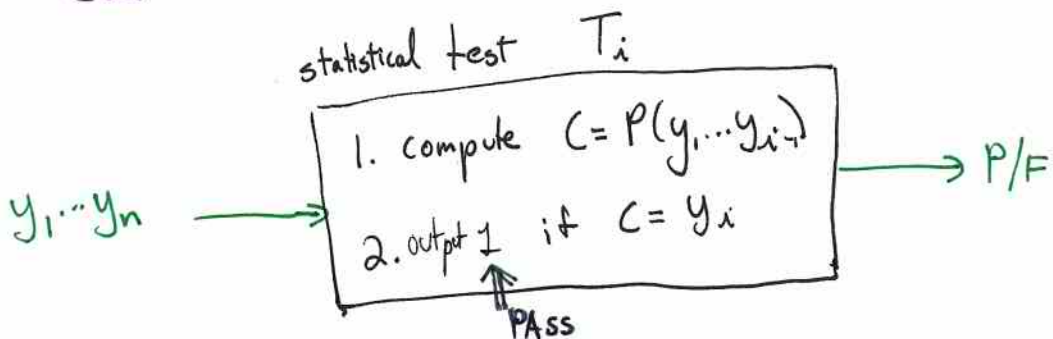 statistical test Tᵢ
1. compute C = P(y₁...yᵢ₋₁)
y₁...yₙ
2. output 1 if C = yᵢ
P/F
PASS